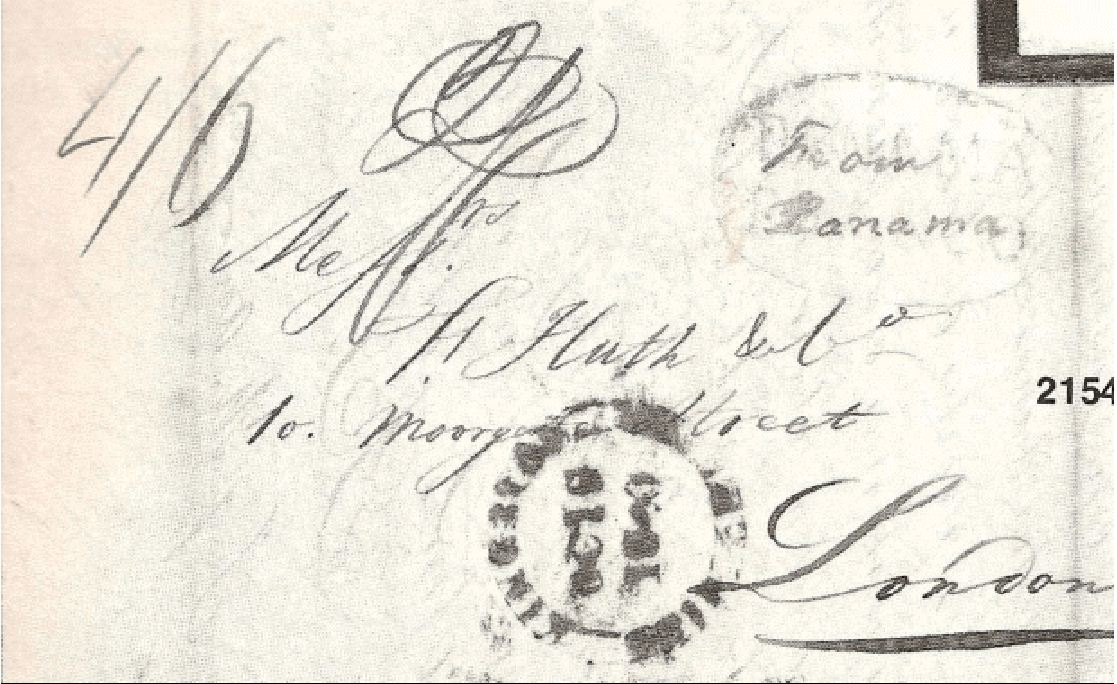 4/6
From
Panama
Messrs.
F. Huth & Co
10. Moorgate Street
2154
London